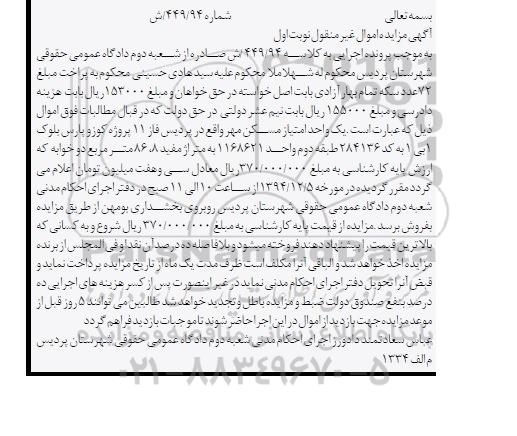 بسمه تعالی شماره ۴۴۹/۹۴/ش
آگهی مزایده اموال غیر منقول نوبت اول
به موجب پرونده اجرایی به کلاســه ۴۴۹/۹۴ ش صــادره از شــعبه دوم دادگاه عمومی حقوقی
شهرستان پردیس محکوم له شــهلا ملا محکوم علیه سید هادی حسینی محکوم به پراخت مبلغ
۷۲عدد سکه تمام بهار آزادی بابت اصل خواسته در حق خواهان و مبلغ ۱۵۳۰۰۰ریال بابت هزینه
دادرسی و مبلغ ۱۵۵۰۰۰ ریال بابت نیم عشر دولتی در حق دولت که در قبال مطالبات فوق اموال
ذیل که عبارت است .یک واحد امتیاز مســکن مهر واقع در پردیس فاز ۱۱ پروژه کوزو پارس بلوک
۱بی ۱ به کد ۲۸۴۱۳۶ طبقه دوم واحــد ۱۱۶۸۶۲۱ به متراژ مفید ۸۶.۸ متــر مربع دو خوابه که
ارزش پایه کارشناسی به مبلغ ۳۷۰/۰۰۰/۰۰۰ ریال معادل ســی وهفت میلیون تومان اعلام می
گردد مقرر گردیده در مورخه ۱۳۹۴/۱۲/۵ از ســاعت ۱۰ الی ۱۱ صبح در دفتر اجرای احکام مدنی
شعبه دوم دادگاه عمومی حقوقی شهرستان پردیس روبروی بخشــداری بومهن از طریق مزایده
بفروش برسد .مزایده از قیمت پایه کارشناسی به مبلغ ۳۷۰/۰۰۰/۰۰۰ ریال شروع و به کسانی که
بالاترین قیمت را پیشنهاد دهند فروخته میشود و بلافاصله ده درصد آن نقدا و فی المجلس از برنده
مزایده اخذ خواهد شد و الباقی آنرا مکلف است ظرف مدت یک ماه از تاریخ مزایده پرداخت نماید و
قبض آنرا تحویل دفتر اجرای احکام مدنی نماید در غیر اینصورت پس از کسر هزینه های اجرایی ده
درصد بنفع صندوق دولت ضبط و مزایده باطل و تجدید خواهد شد طالبین می توانند ۵ روز قبل از
موعد مزایده جهت بازدید از اموال در این اجرا حاضر شوند تا موجبات بازدید فراهم گردد
عباس سعادتمند دادورز اجرای احکام مدنی شعبه دوم دادگاه عمومی حقوقی شهرستان پردیس
م الف ۱۳۳۴
۰۲۱-۸۸۳۴۹۶۷۰-۵